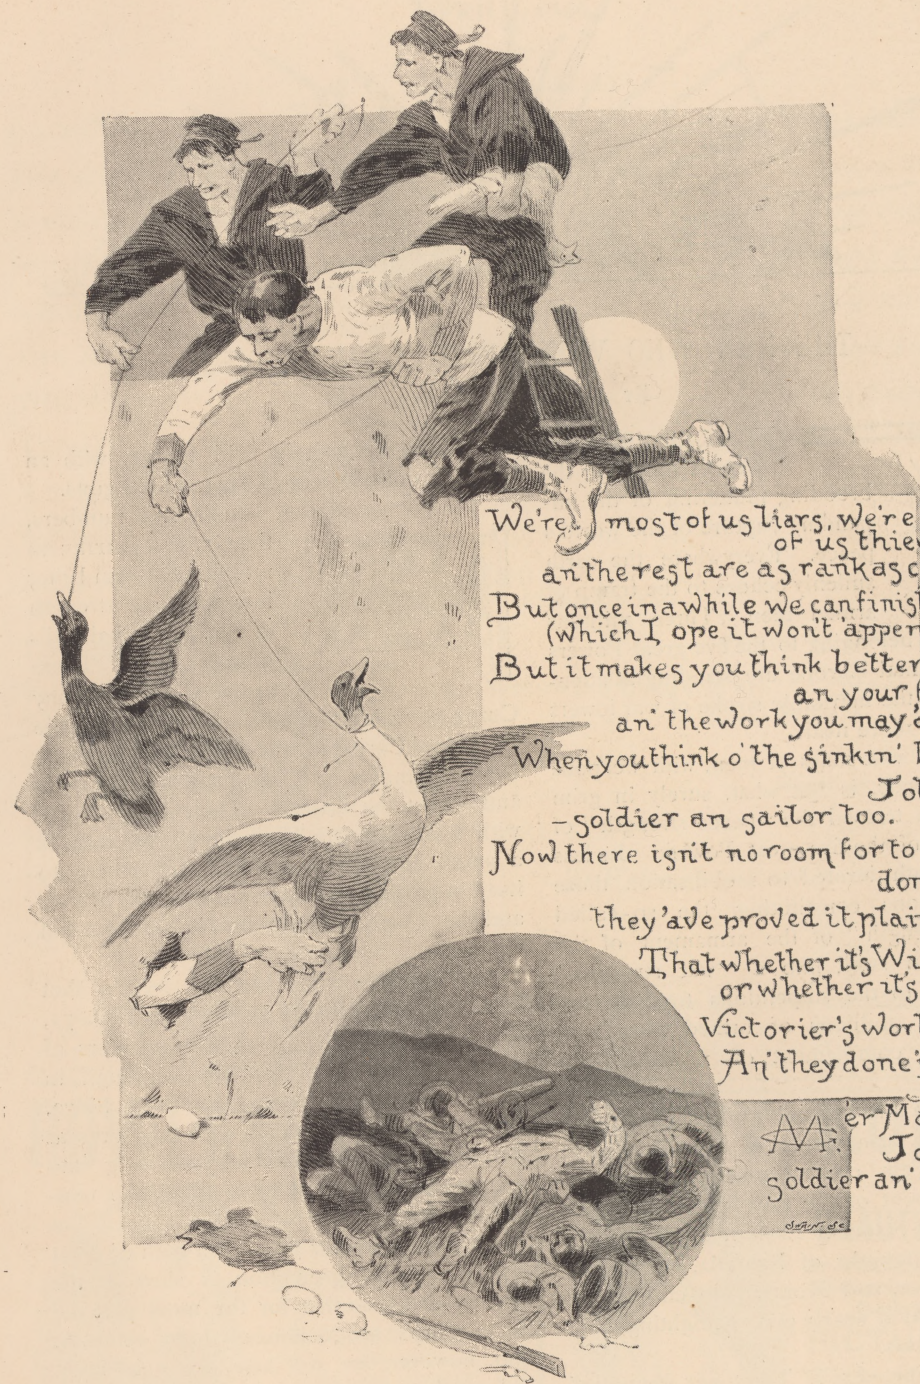 We're most of us liars, we're
of us
an' the rest are as rank as
But once in a while we can finish
(which I ope it won't 'appen
But it makes you think better
an your
an' the work you may
When you think o' the sinkin'
— soldier an sailor too.
Now there isn't no room for to
they 'ave proved it plain
That whether it's
or whether it's
Victorier's work
An' they done
'er
soldier an'